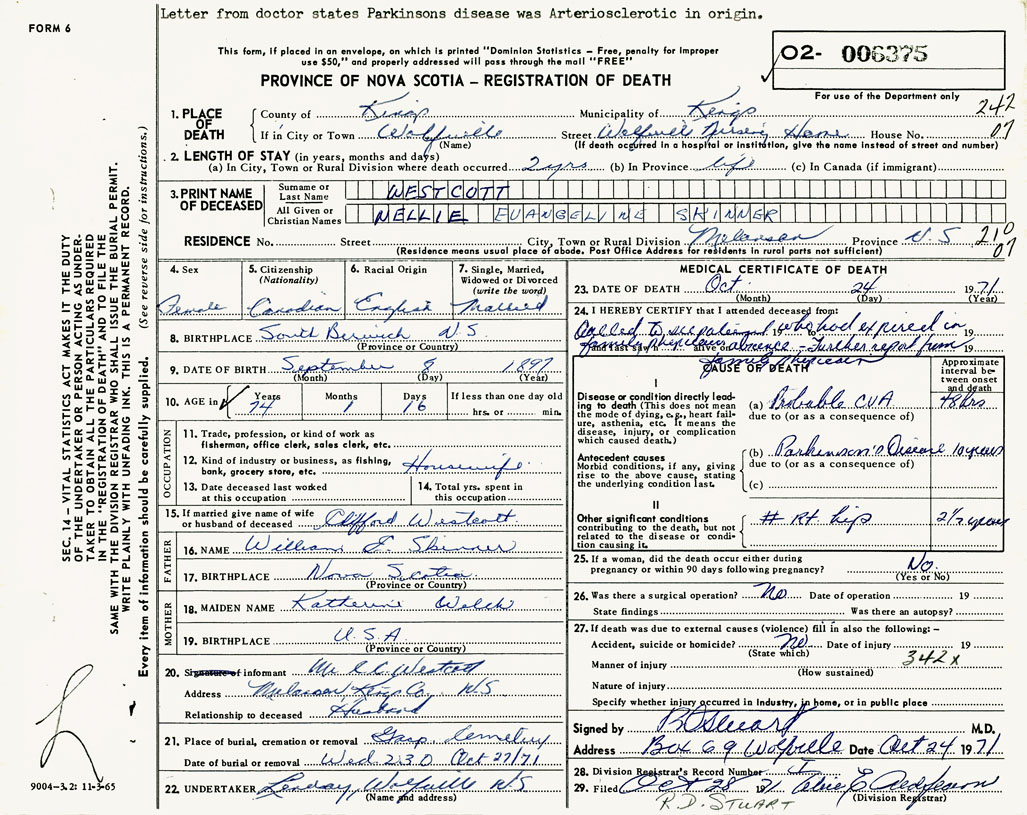 Letter from doctor states Parkinsons disease was Arteriosclerotic in origin.
FORM 6
This form, if placed in an envelope, on which is printed "Dominion Statistics – Free, penalty for improper
use $50," and properly addressed will pass through the mail "FREE"
PROVINCE OF NOVA SCOTIA – REGISTRATION OF DEATH
02- 006375
For use of the Department only
1. PLACE OF DEATH
County of Kings Municipality of Kings 242
If in City or Town Wolfville Street Wolfville Nursing Home House No. 07
(Name) (If death occurred in a hospital or institution, give the name instead of street and number)
2. LENGTH OF STAY (in years, months and days)
(a) In City, Town or Rural Division where death occurred 2 yrs (b) In Province life (c) In Canada (if immigrant)
3. PRINT NAME OF DECEASED
Surname or Last Name WESTCOTT
All Given or Christian Names NELLIE EVANGELINE SKINNER
RESIDENCE No. Street City, Town or Rural Division Melanson Province N.S 210
(Residence means usual place of abode. Post Office Address for residents in rural parts not sufficient) 07
4. Sex Female
5. Citizenship (Nationality) Canadian
6. Racial Origin English
7. Single, Married, Widowed or Divorced (write the word) Married
8. BIRTHPLACE South Berwick N.S
(Province or Country)
9. DATE OF BIRTH September 8 1897
(Month) (Day) (Year)
10. AGE in Years 74 Months 1 Days 16 If less than one day old
hrs. or min.
OCCUPATION
11. Trade, profession, or kind of work as
fisherman, office clerk, sales clerk, etc.
12. Kind of industry or business, as fishing,
bank, grocery store, etc. Housewife
13. Date deceased last worked
at this occupation
14. Total yrs. spent in
this occupation
15. If married give name of wife
or husband of deceased Clifford Westcott
FATHER
16. NAME William E. Skinner
17. BIRTHPLACE Nova Scotia
(Province or Country)
MOTHER
18. MAIDEN NAME Katherine Welch
19. BIRTHPLACE U.S.A
(Province or Country)
20. Signature of informant Mr. C.C. Westcott
Address Melanson Kings Co. N.S
Relationship to deceased Husband
21. Place of burial, cremation or removal Gasp Cemetery
Date of burial or removal Wed 2:30 Oct 27/71
22. UNDERTAKER Lindsay Wolfville N.S
(Name and address)
MEDICAL CERTIFICATE OF DEATH
23. DATE OF DEATH Oct 24 1971
(Month) (Day) (Year)
24. I HEREBY CERTIFY that I attended deceased from:
Called to see patient 19 who had expired in
and last saw h alive on 19
family physicians absence – Further report from
family physician
CAUSE OF DEATH
Approximate interval between onset and death
I
Disease or condition directly leading to death (This does not
the mode of dying, e.g., heart failure, asthenia, etc. It means the
disease, injury, or complication
which caused death.)
(a) Probable CVA 48 hrs
due to (or as a consequence of)
Antecedent causes
Morbid conditions, if any, giving
rise to the above cause, stating
the underlying condition last.
(b) Parkinson's Disease 10 years
due to (or as a consequence of)
(c)
II
Other significant conditions
contributing to the death, but not
related to the disease or condition causing it.
# Rt hip 2½ years
25. If a woman, did the death occur either during
pregnancy or within 90 days following pregnancy? No
(Yes or No)
26. Was there a surgical operation? No Date of operation 19
State findings Was there an autopsy?
27. If death was due to external causes (violence) fill in also the following: –
Accident, suicide or homicide? no Date of injury 19
(State which) 342x
Manner of injury
(How sustained)
Nature of injury
Specify whether injury occurred in Industry, in home, or in public place
Signed by RDStuart M.D.
Address Box 69 Wolfville Date Oct 24 1971
28. Division Registrar's Record Number
29. Filed Oct 28 1971
(Division Registrar)
R.D. STUART
SEC. 14 – VITAL STATISTICS ACT MAKES IT THE DUTY
OF THE UNDERTAKER OR PERSON ACTING AS UNDER-
TAKER TO OBTAIN ALL THE PARTICULARS REQUIRED
IN THE "REGISTRATION OF DEATH" AND TO FILE THE
SAME WITH THE DIVISION REGISTRAR WHO SHALL ISSUE THE BURIAL PERMIT.
WRITE PLAINLY WITH UNFADING INK. THIS IS A PERMANENT RECORD.
Every item of information should be carefully supplied. (See reverse side for instructions.)
9004-3.2: 11-3-65